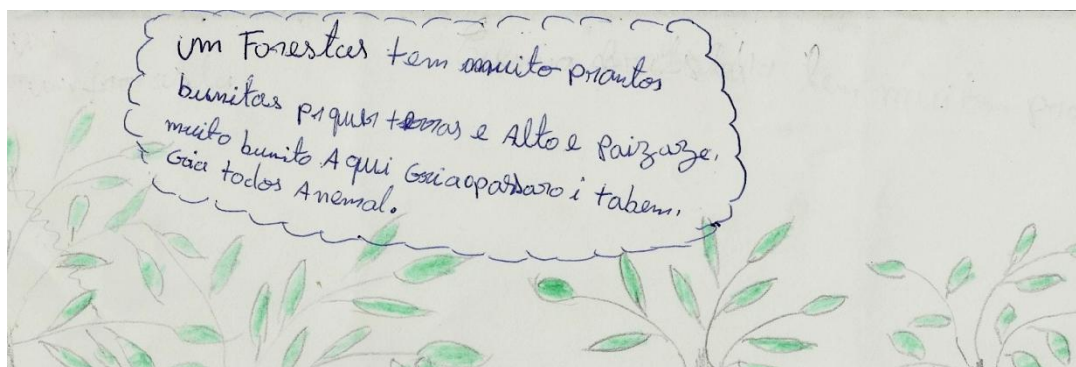 um Forestas tem muito prantos
bunitas piquen terras e Alto e Paizaze.
muito bunito Aqui Gria o parsaro i tabem.
Gria todos Anemal.